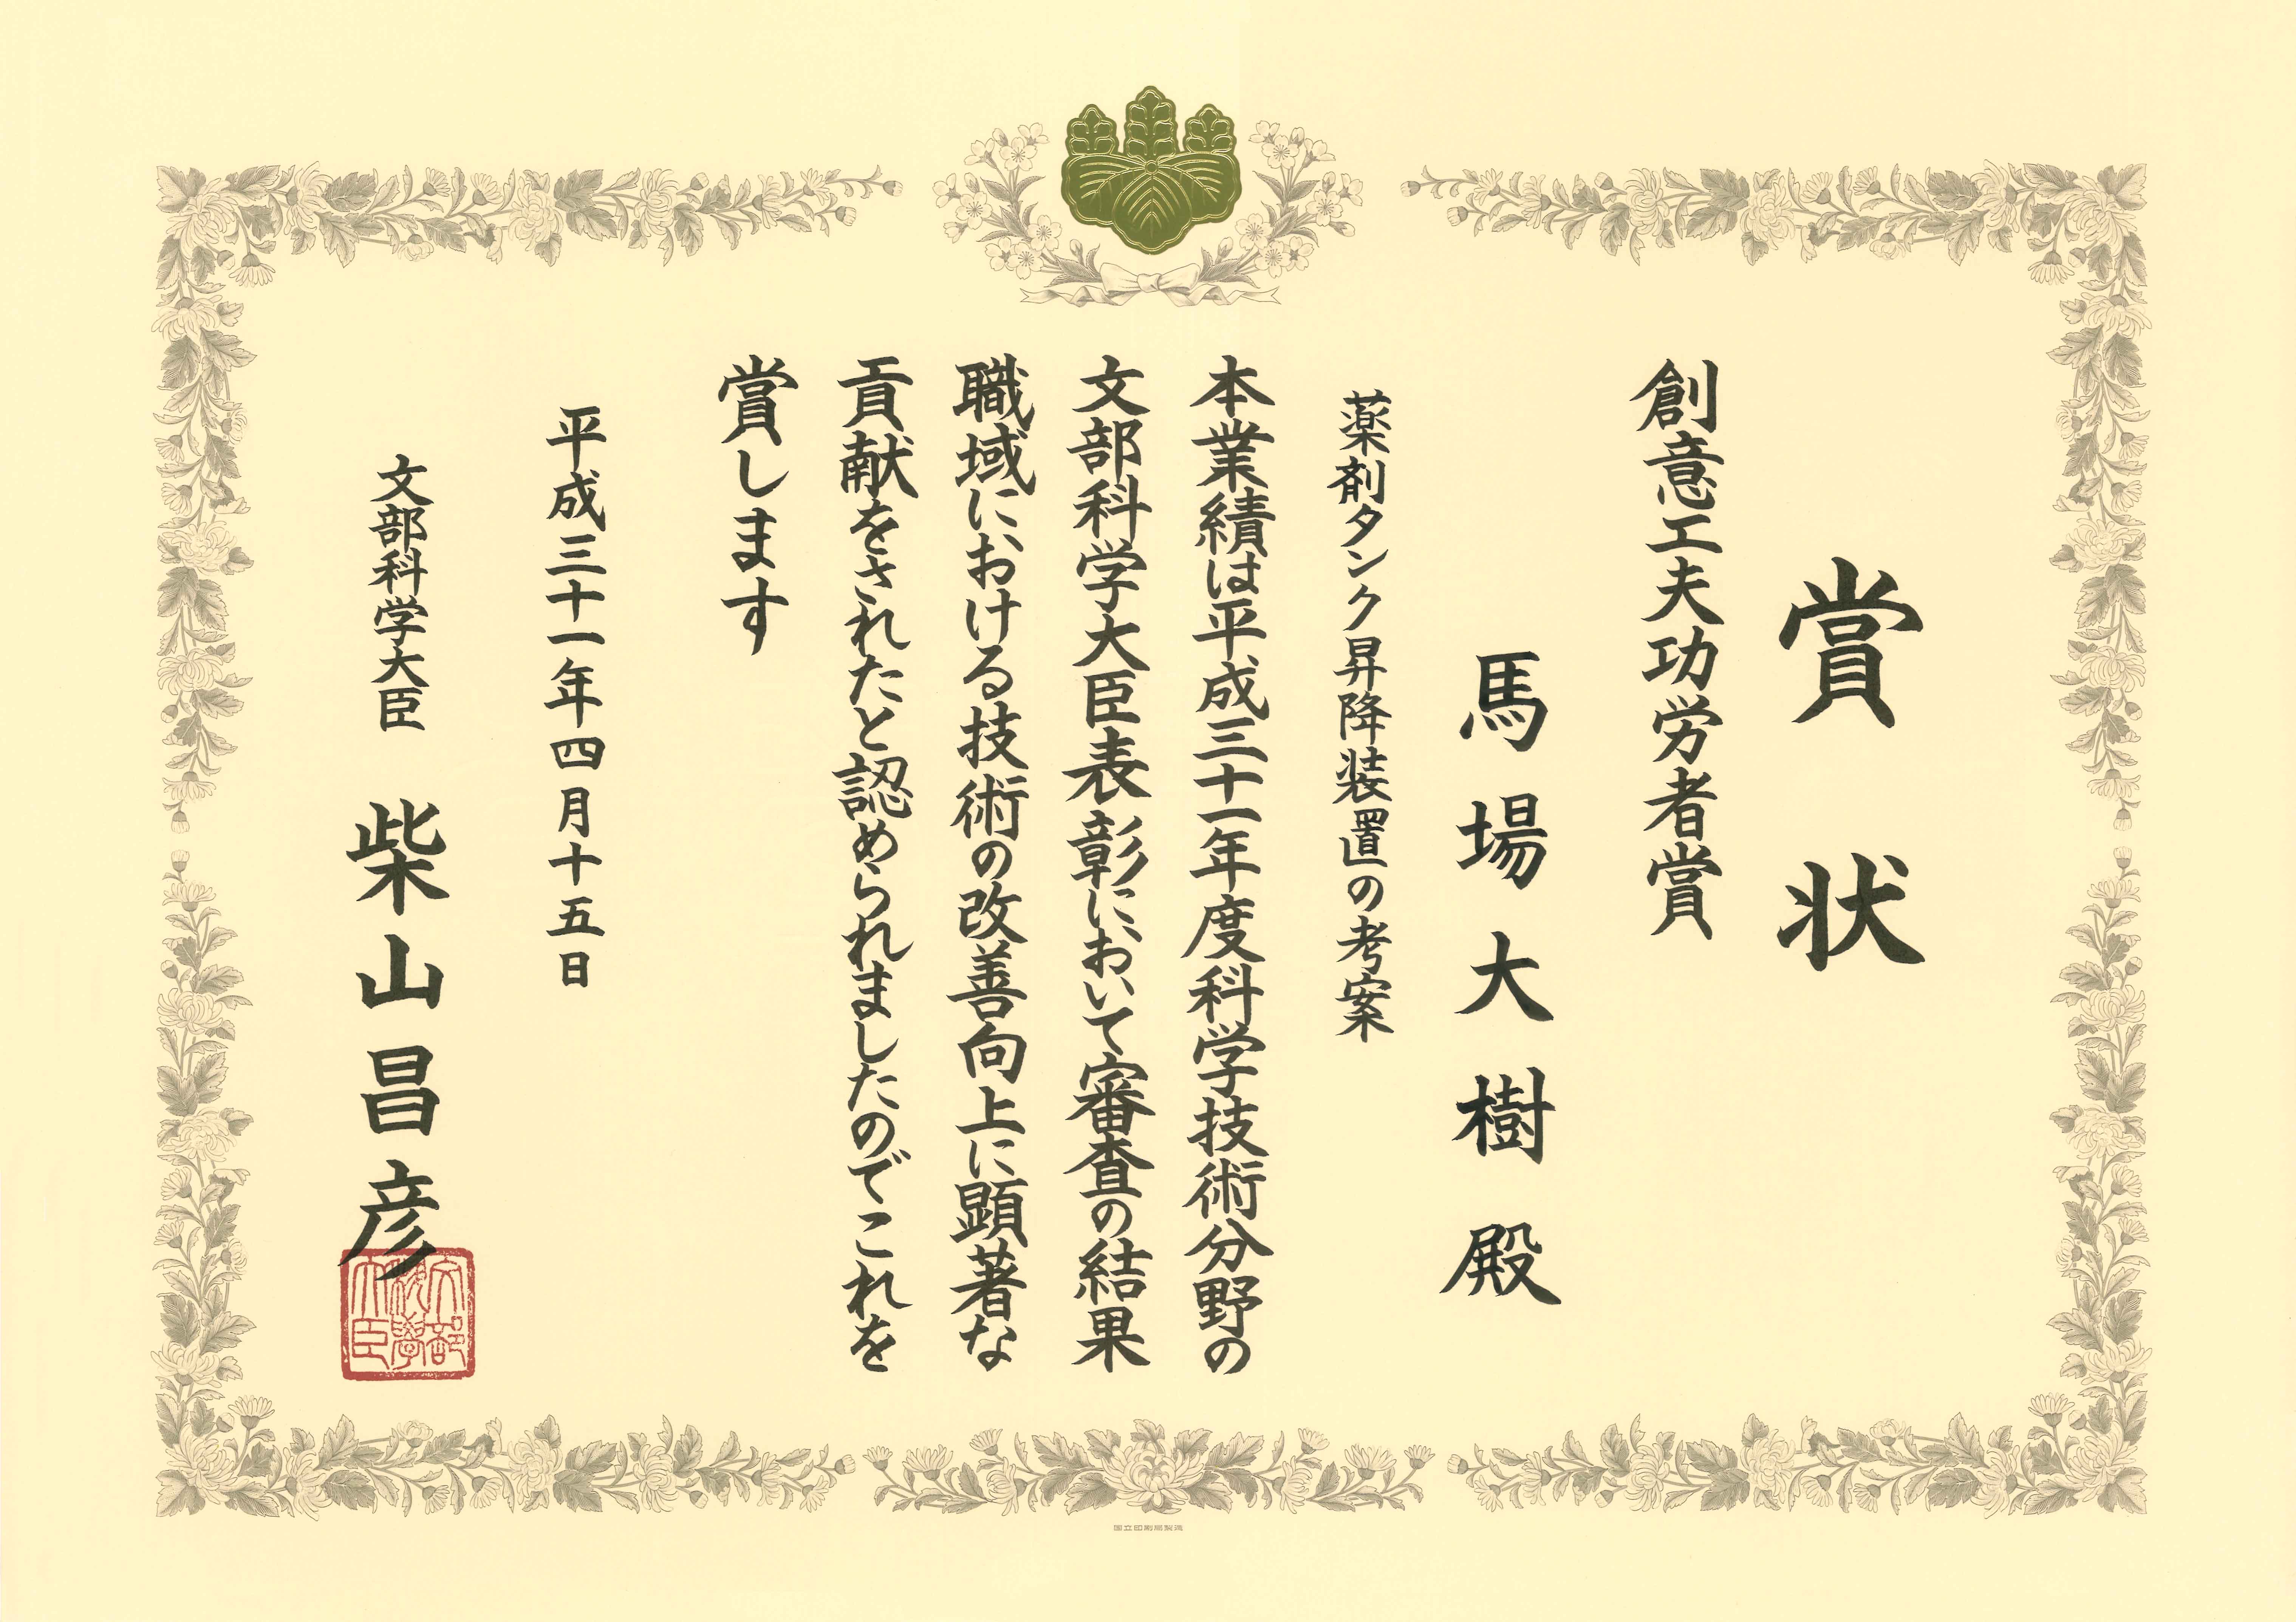 賞状
創意工夫功労者賞
馬場大樹殿
薬剤タンク昇降装置の考案
本業績は平成三十一年度科学技術分野の
文部科学大臣表彰において審査の結果
職域における技術の改善向上に顕著な
貢献をされたと認められましたのでこれを
賞します
平成三十一年四月十五日
文部科学大臣 柴山昌彦
国立印刷局製造